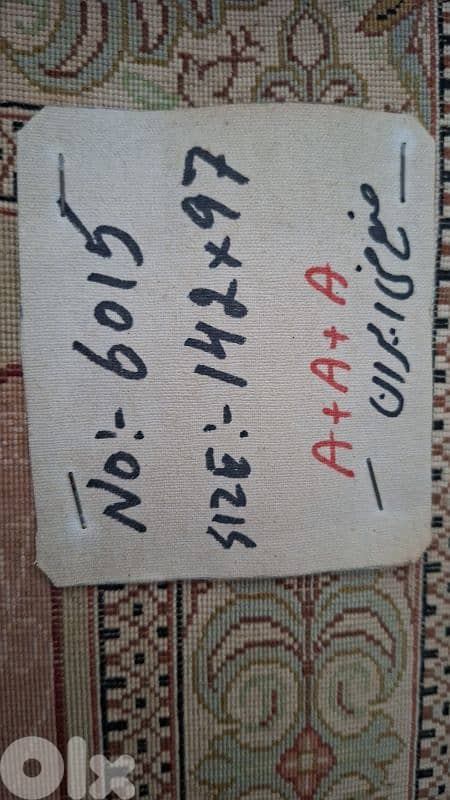 No:- 6015
SIZE:- 142x97
A+A+A
صنع في ايران
OLX